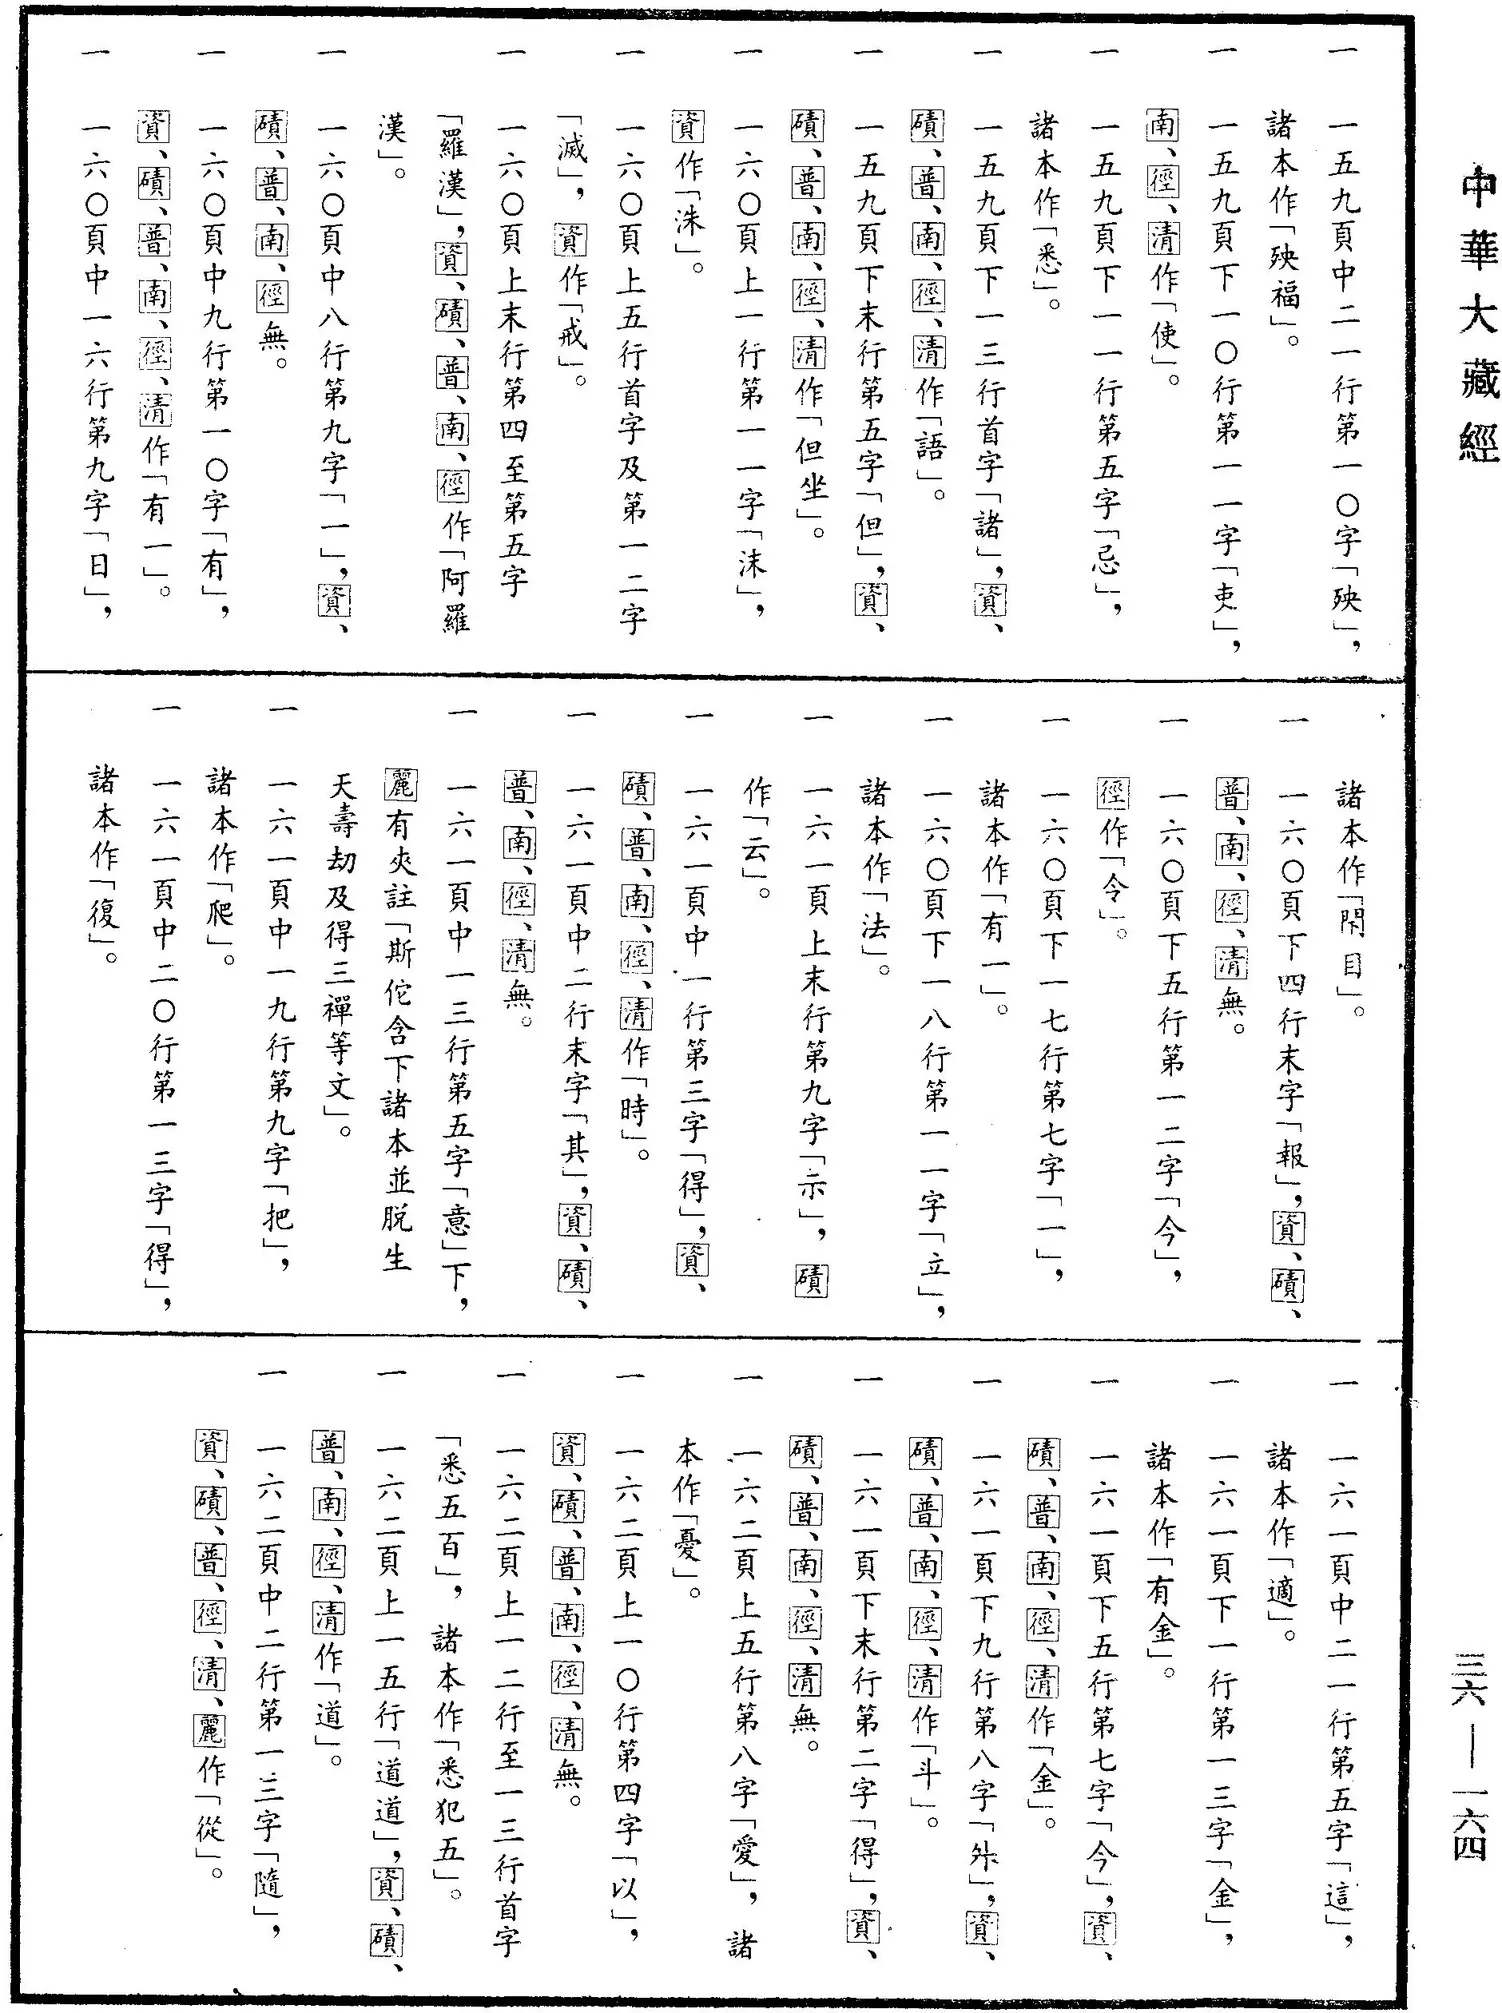 中華大藏經
一　一五九頁中二一行第一〇字「殃」，
諸本作「殃福」。
一　一五九頁下一〇行第一一字「吏」，
南、徑、清作「使」。
一　一五九頁下一一行第五字「忌」，
諸本作「悉」。
一　一五九頁下一三行首字「諸」，資、
磧、普、南、徑、清作「語」。
一　一五九頁下末行第五字「但」，資、
磧、普、南、徑、清作「但坐」。
一　一六〇頁上一行第一一字「沫」，
資作「洙」。
一　一六〇頁上五行首字及第一二字
「滅」，資作「戒」。
一　一六〇頁上末行第四至第五字
「羅漢」，資、磧、普、南、徑作「阿羅
漢」。
一　一六〇頁中八行第九字「一」，資、
磧、普、南、徑無。
一　一六〇頁中九行第一〇字「有」，
資、磧、普、南、徑、清作「有一」。
一　一六〇頁中一六行第九字「日」，
諸本作「閇目」。
一　一六〇頁下四行末字「報」，資、磧、
普、南、徑、清無。
一　一六〇頁下五行第一二字「今」，
徑作「令」。
一　一六〇頁下一七行第七字「一」，
諸本作「有一」。
一　一六〇頁下一八行第一一字「立」，
諸本作「法」。
一　一六一頁上末行第九字「示」，磧
作「云」。
一　一六一頁中一行第三字「得」，資、
磧、普、南、徑、清作「時」。
一　一六一頁中二行末字「其」，資、磧、
普、南、徑、清無。
一　一六一頁中一三行第五字「意」下，
麗有夾註「斯佗含下諸本並脱生
天壽劫及得三禪等文」。
一　一六一頁中一九行第九字「把」，
諸本作「爬」。
一　一六一頁中二〇行第一三字「得」，
諸本作「復」。
一　一六一頁中二一行第五字「這」，
諸本作「適」。
一　一六一頁下一行第一三字「金」，
諸本作「有金」。
一　一六一頁下五行第七字「今」，資、
磧、普、南、徑、清作「金」。
一　一六一頁下九行第八字「外」，資、
磧、普、南、徑、清作「斗」。
一　一六一頁下末行第二字「得」，資、
磧、普、南、徑、清無。
一　一六二頁上五行第八字「愛」，諸
本作「憂」。
一　一六二頁上一〇行第四字「以」，
資、磧、普、南、徑、清無。
一　一六二頁上一二行至一三行首字
「悉五百」，諸本作「悉犯五」。
一　一六二頁上一五行「道道」，資、磧、
普、南、徑、清作「道」。
一　一六二頁中二行第一三字「隨」，
資、磧、普、徑、清、麗作「從」。
三六—一六四